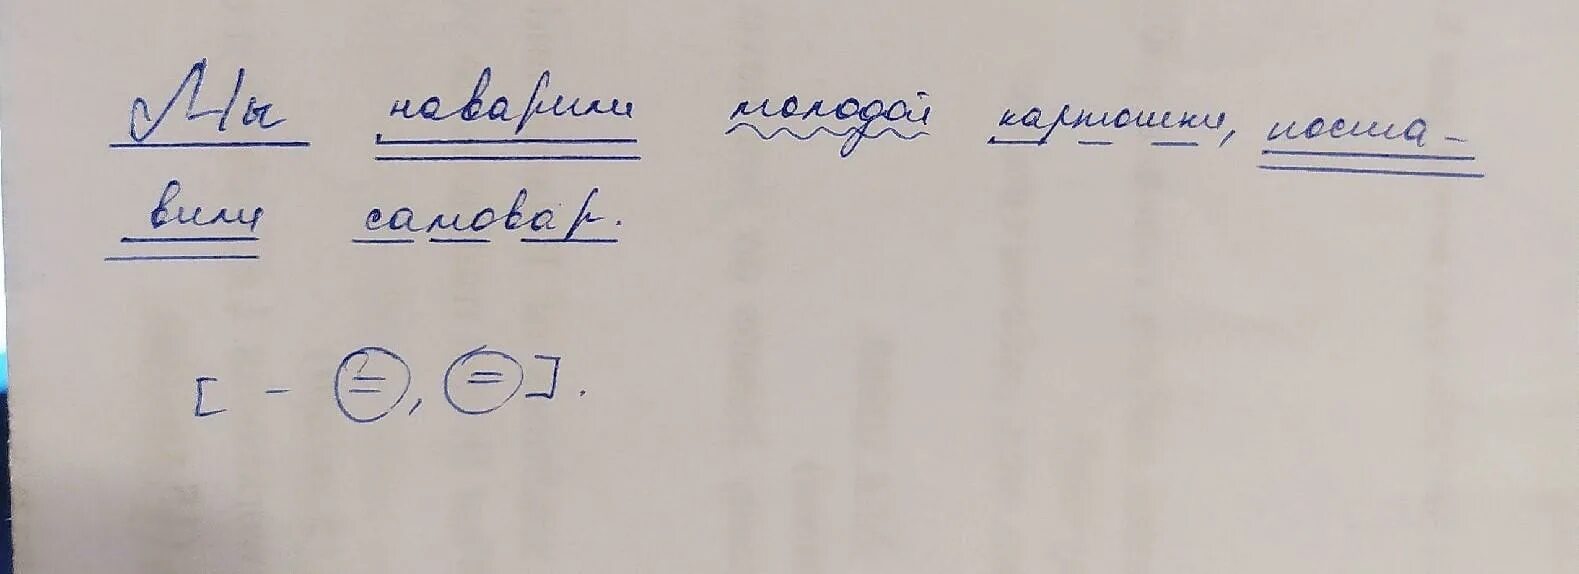 Мы наварили молодой картошки, поста-
вили самовар.
[ - =, = ].